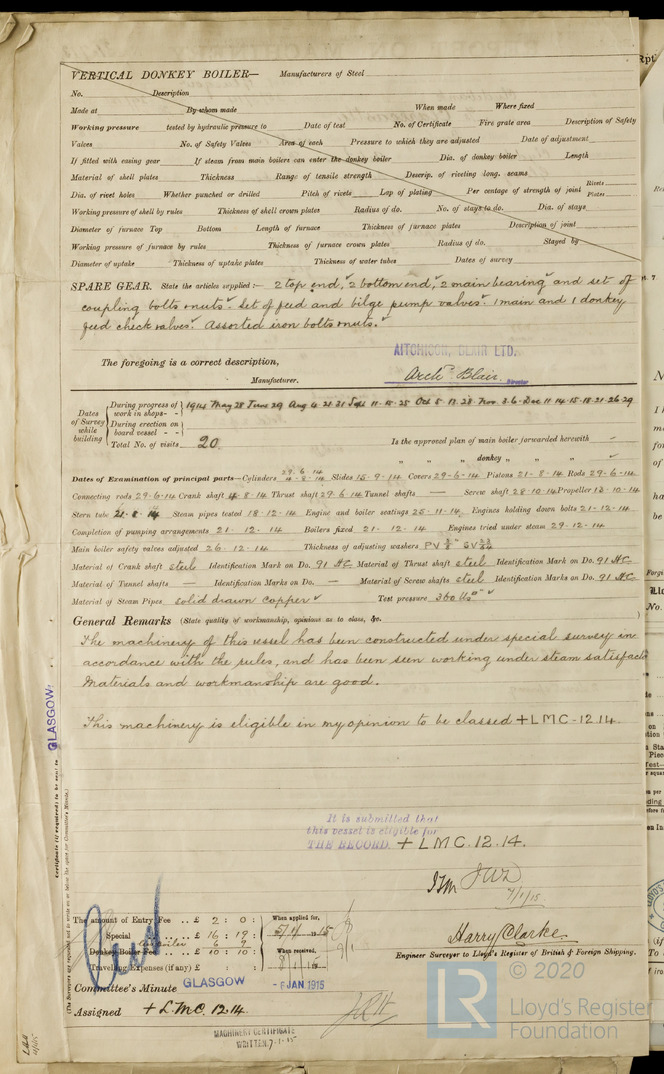 VERTICAL DONKEY BOILER— Manufacturers of Steel
No. Description
Made at By whom made When made Where fixed
Working pressure tested by hydraulic pressure to Date of test No. of Certificate Fire grate area Description of Safety
Valves No. of Safety Valves Area of each Pressure to which they are adjusted Date of adjustment
If fitted with easing gear If steam from main boilers can enter the donkey boiler Dia. of donkey boiler Length
Material of shell plates Thickness Range of tensile strength Descrip. of riveting long. seams
Dia. of rivet holes Whether punched or drilled Pitch of rivets Lap of plating Per centage of strength of joint Rivets Plates
Working pressure of shell by rules Thickness of shell crown plates Radius of do. No. of stays to do. Dia. of stays
Diameter of furnace Top Bottom Length of furnace Thickness of furnace plates Description of joint
Working pressure of furnace by rules Thickness of furnace crown plates Radius of do. Stayed by
Diameter of uptake Thickness of uptake plates Thickness of water tubes Dates of survey
SPARE GEAR. State the articles supplied:— 2 top end, 2 bottom end, 2 main bearing and set of
coupling bolts & nuts. Set of feed and bilge pump valves. 1 main and 1 donkey
feed check valves. Assorted iron bolts & nuts.
AITCHISON, BLAIR LTD.
The foregoing is a correct description,
Manufacturer. Archd Blair Director
Dates of Survey while building
During progress of work in shops- - 1914 May 28 June 29 Aug 4. 21. 31 Sept 11. 15. 25 Oct 5. 13. 28. Nov. 3. 6. Dec 11. 14. 15. 18. 21. 26. 29
During erection on board vessel - -
Total No. of visits 20 Is the approved plan of main boiler forwarded herewith
" " " donkey " " "
Dates of Examination of principal parts—Cylinders 29.6.14 4-8-14 Slides 15-9-14 Covers 29-6-14 Pistons 21-8-14 Rods 29-6-14
Connecting rods 29-6-14 Crank shaft 4-8-14 Thrust shaft 29-6-14 Tunnel shafts — Screw shaft 28-10-14 Propeller 13-10-14
Stern tube 21-8-14 Steam pipes tested 18-12-14 Engine and boiler seatings 25-11-14 Engines holding down bolts 21-12-14
Completion of pumping arrangements 21-12-14 Boilers fixed 21-12-14 Engines tried under steam 29-12-14
Main boiler safety valves adjusted 26-12-14 Thickness of adjusting washers
Material of Crank shaft steel Identification Mark on Do. 91 HC Material of Thrust shaft steel Identification Mark on Do. 91 HC
Material of Tunnel shafts — Identification Marks on Do. — Material of Screw shafts steel Identification Marks on Do. 91 HC
Material of Steam Pipes solid drawn copper Test pressure 360 lbs
General Remarks (State quality of workmanship, opinions as to class, &c.
The machinery of this vessel has been constructed under special survey in
accordance with the rules, and has been seen working under steam satisfact
Materials and workmanship are good.
This machinery is eligible in my opinion to be classed + LMC-12.14.
It is submitted that
this vessel is eligible for
THE RECORD. + L M C. 12.14.
7/1/15.
The amount of Entry Fee .. £ 2 : 0 : When applied for,
Special £ 16 : 19 :
Donkey Boiler Fee £ 10 : 10 : When received,
Travelling Expenses (if any) £ : :
Harry Clarke.
Engineer Surveyor to Lloyd's Register of British & Foreign Shipping.
Committee's Minute GLASGOW - 6 JAN 1915
Assigned + L.M.C. 12.14.
MACHINERY CERTIFICATE
WRITTEN 7-1-15
GLASGOW
Certificate (if required) to be sent to
(The Surveyors are requested not to write on or below the space for Committee's Minute.)
LR
© 2020
Lloyd's Register
Foundation